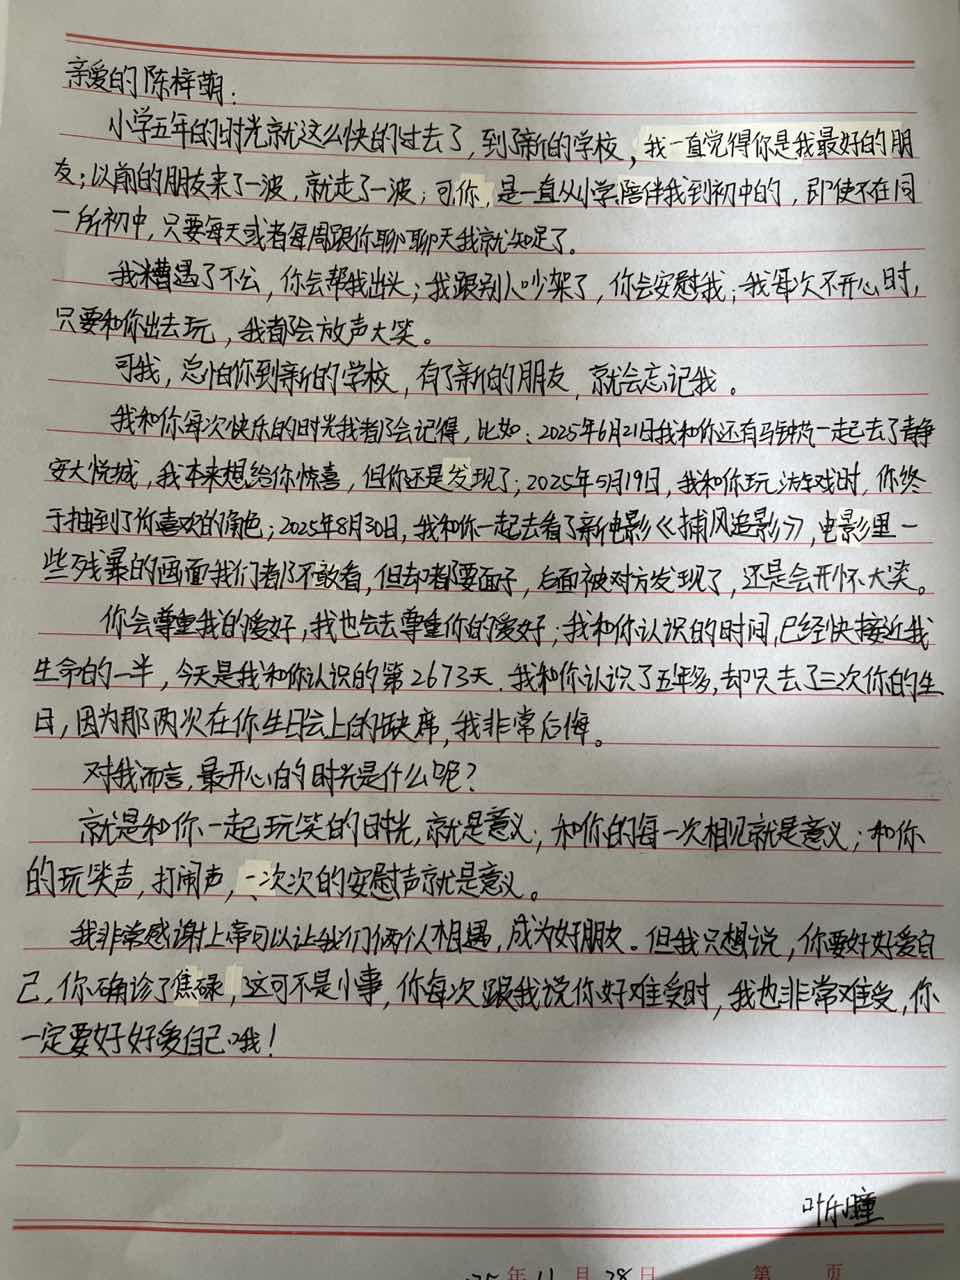 亲爱的陈梓萌：
小学五年的时光就这么快的过去了，到了新的学校，我一直觉得你是我最好的朋
友；以前的朋友来了一波，就走了一波；可你，是一直从小学陪伴我到初中的，即使不在同
一所初中，只要每天或者每周跟你聊聊天我就知足了。
我糟遇了不公，你会帮我出头；我跟别人吵架了，你会安慰我；我每次不开心时，
只要和你出去玩，我都会放声大笑。
可我，总怕你到新的学校，有了新的朋友，就会忘记我。
我和你每次快乐的时光我都会记得，比如：2025年6月21日我和你还有马钟芃一起去了静
安大悦城，我本来想给你惊喜，但你还是发现了；2025年5月19日，我和你玩游戏时，你终
于抽到了你喜欢的角色；2025年8月30日，我和你一起去看了新电影《捕风追影》，电影里一
些残暴的画面我们都不敢看，但却都要面子，后面被对方发现了，还是会开怀大笑。
你会尊重我的爱好，我也会去尊重你的爱好；我和你认识的时间，已经快接近我
生命的一半，今天是我和你认识的第2673天．我和你认识了五年多，却只去了三次你的生
日，因为那两次在你生日会上的缺席，我非常后悔。
对我而言，最开心的时光是什么呢？
就是和你一起玩笑的时光，就是意义；和你的每一次相见就是意义；和你
的玩笑声，打闹声，一次次的安慰声就是意义。
我非常感谢上帝可以让我们俩个人相遇，成为好朋友。但我只想说，你要好好爱自
己，你确诊了焦碌，这可不是小事，你每次跟我说你好难受时，我也非常难受，你
一定要好好爱自己哦！
叶乐瞳
25年11月28日 第 页